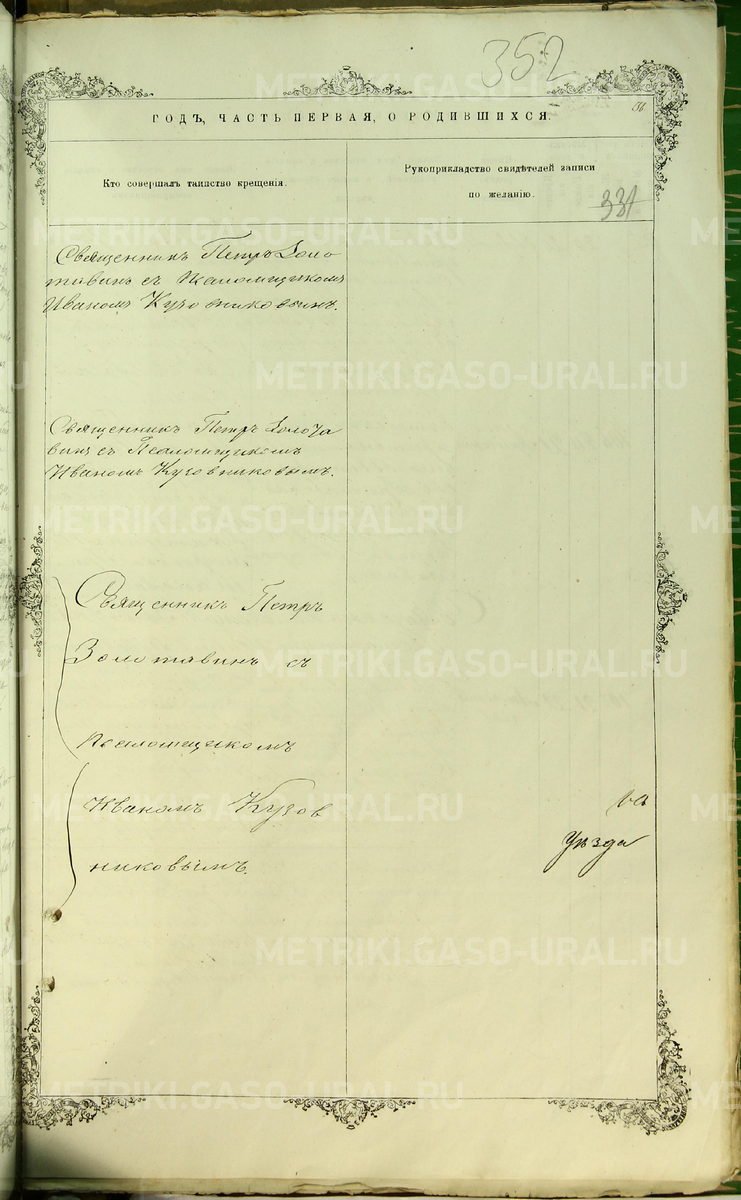 352
56
ГОДЪ, ЧАСТЬ ПЕРВАЯ, О РОДИВШИХСЯ.
Кто совершалъ таинство крещенія.
Рукоприкладство свидѣтелей записи
по желанію.
331
Священникъ Петръ Золо
тавинъ съ Псаломщикомъ
Иваномъ Кузовниковымъ.
Священникъ Петръ Золота
винъ съ Псаломщикомъ
Иваномъ Кузовниковымъ.
Священникъ Петръ
Золотавинъ съ
Псаломщикомъ
Иваномъ Кузов
никовымъ.
ва
Уѣзда
METRIKI.GASO-URAL.RU